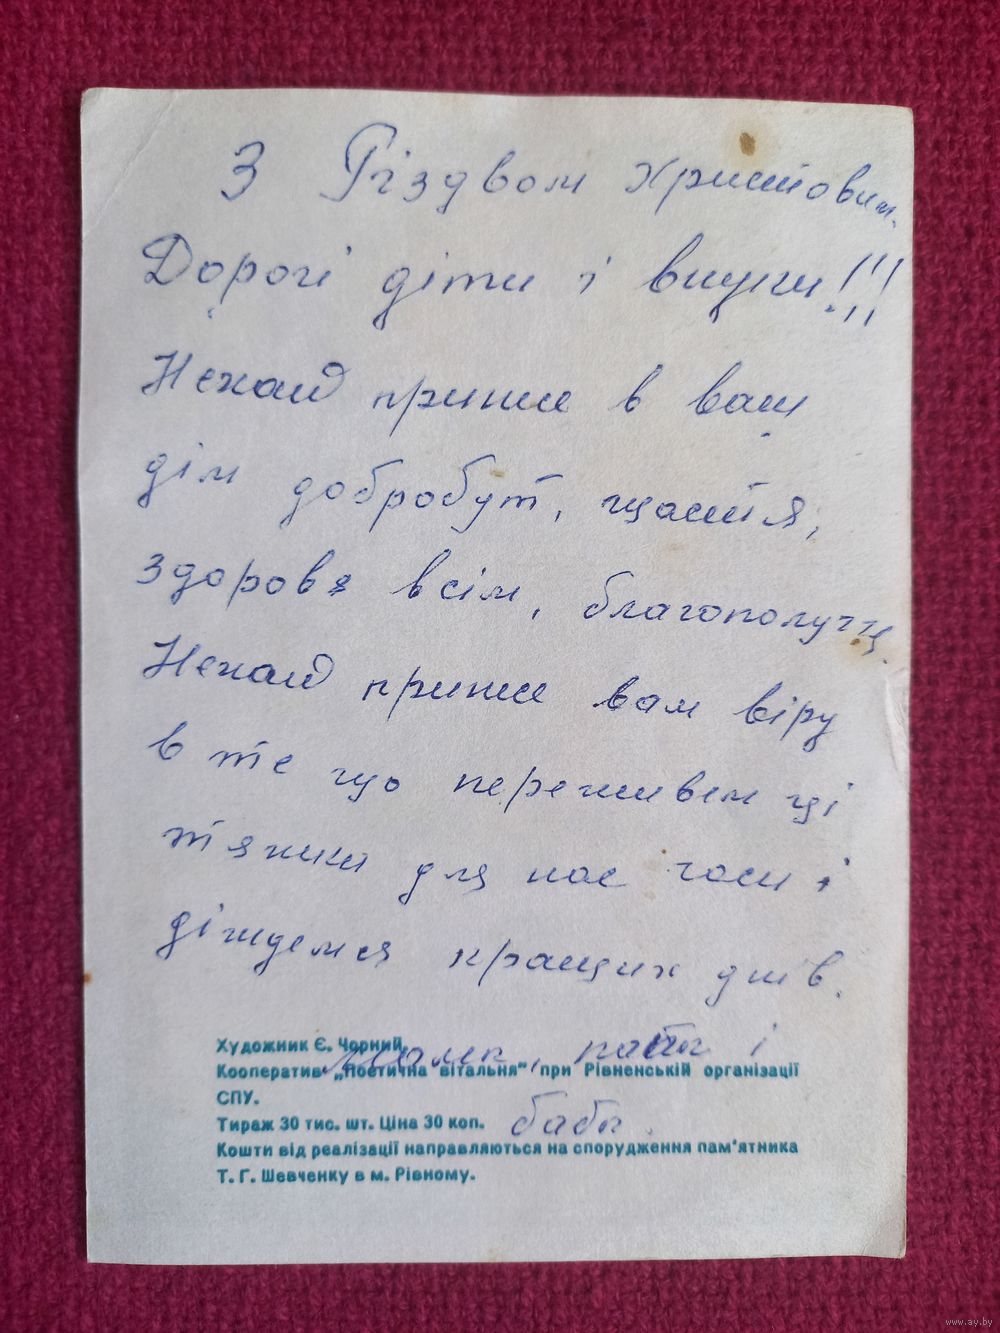 З Різдвом Христовим.
Дорогі діти і внуки!!!
Нехай принесе в ваш
дім добробут, щастя,
здоровя всім, благополуччя.
Нехай принесе вам віру
в те що переживем ці
тяжкі для нас часи і
діждемся кращих днів.
Художник Є. Чорний.
мами, папи і
Кооператив „Поетична вітальня", при Рівненській організації
СПУ.
Тираж 30 тис. шт. Ціна 30 коп.
баби.
Кошти від реалізації направляються на спорудження пам'ятника
Т. Г. Шевченку в м. Рівному.
www.ay.by